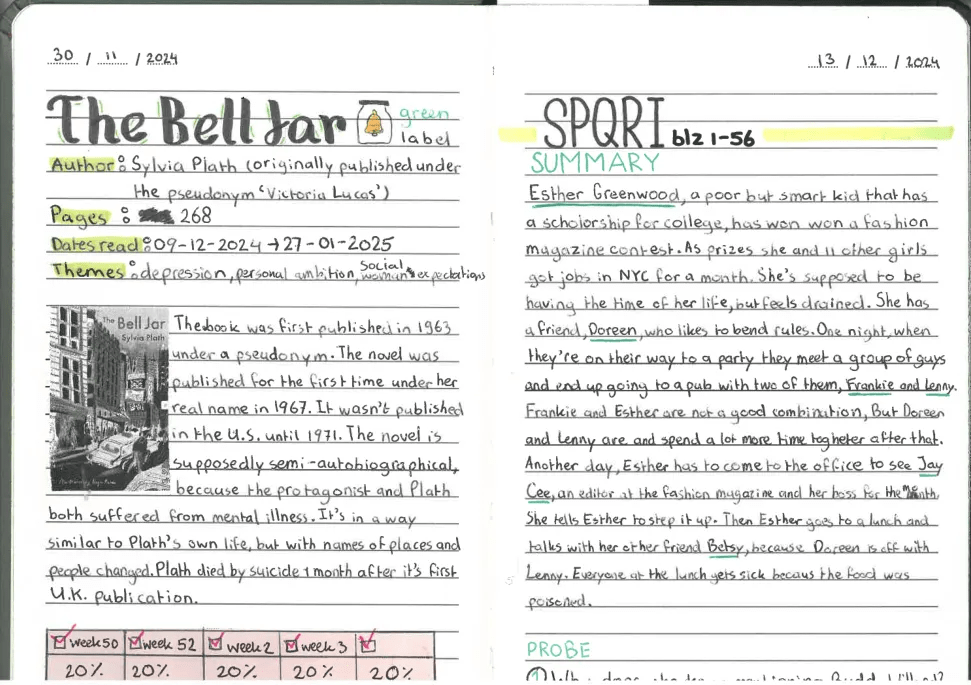 30 / 11 / 2024
The Bell Jar
green
label
Author: Sylvia Plath (originally published under
the pseudonym 'Victoria Lucas')
Pages: 268
Dates read: 09-12-2024 → 27-01-2025
Themes: depression, personal ambition, Social woman's expectations
The Bell Jar
Sylvia Plath
The book was first published in 1963
under a pseudonym. The novel was
published for the first time under her
real name in 1967. It wasn't published
in the U.S. until 1971. The novel is
supposedly semi-autobiographical,
because the protagonist and Plath
both suffered from mental illness. It's in a way
similar to Plath's own life, but with names of places and
people changed. Plath died by suicide 1 month after it's first
U.K. publication.
week 50 week 52 week 2 week 3
20% 20% 20% 20% 20%
13 / 12 / 2024
SPQRI blz 1-56
SUMMARY
Esther Greenwood, a poor but smart kid that has
a scholorship for college, has won won a fashion
magazine contest. As prizes she and 11 other girls
got jobs in NYC for a month. She's supposed to be
having the time of her life, but feels drained. She has
a friend, Doreen, who likes to bend rules. One night, when
they're on their way to a party they meet a group of guys
and end up going to a pub with two of them, Frankie and Lenny.
Frankie and Esther are not a good combination, But Doreen
and Lenny are and spend a lot more time togheter after that.
Another day, Esther has to come to the office to see Jay
Cee, an editor at the fashion magazine and her boss for the month.
She tells Esther to step it up. Then Esther goes to a lunch and
talks with her other friend Betsy, because Doreen is off with
Lenny. Everyone at the lunch gets sick becaus the food was
poisoned.
PROBE